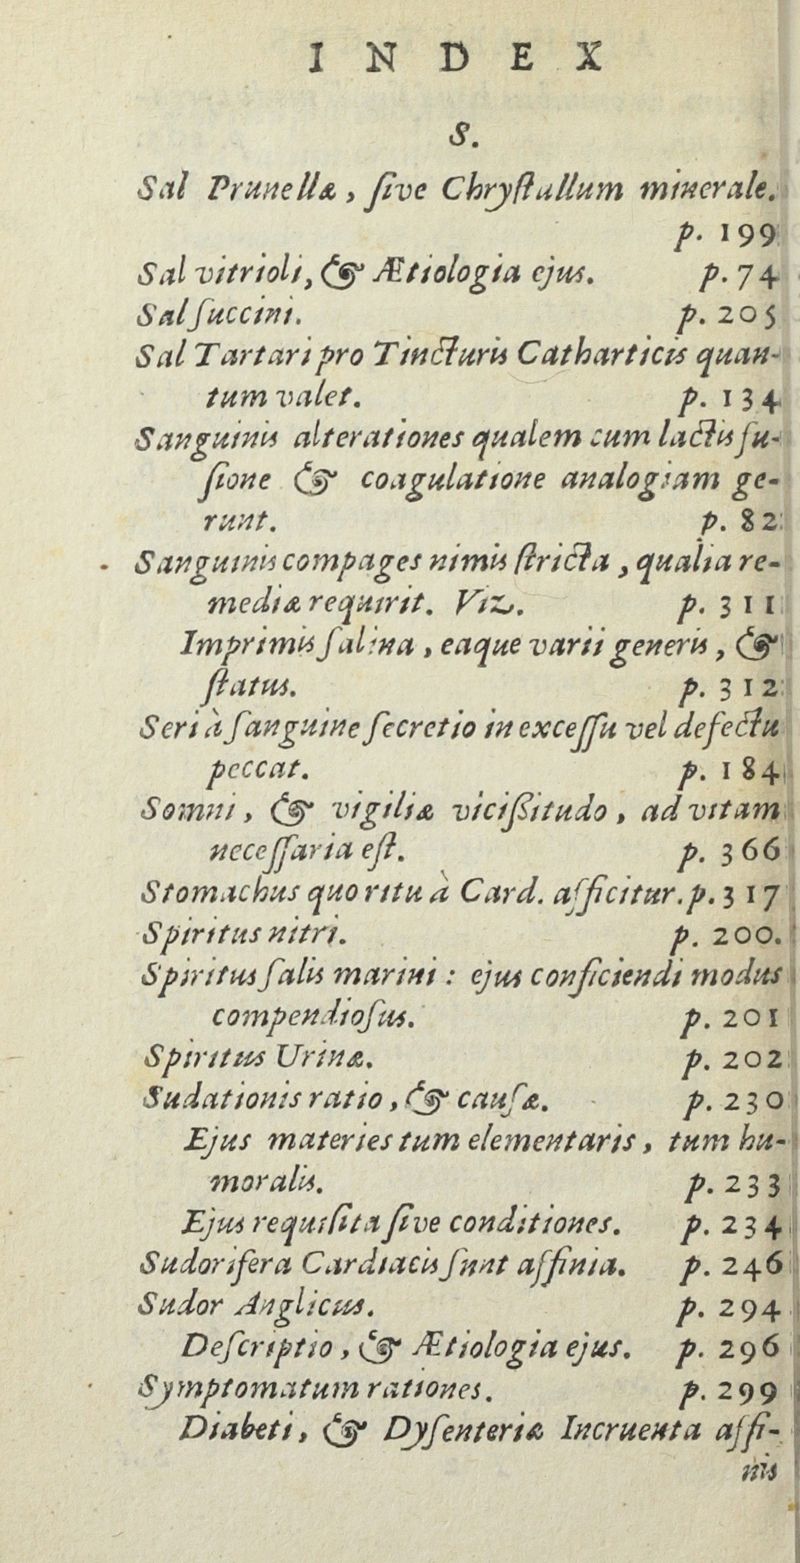 INDEX
S.
Sal Prunellæ, ſive Chryſtallum minerale.
p. 199
Sal vitrioli, & Ætiologia ejus. p. 74
Sal ſuccini. p. 205
Sal Tartari pro Tincturis Catharticis quan-
tum valet. p. 134
Sanguinis alterationes qualem cum lactis fu-
ſione & coagulatione analogiam ge-
runt. p. 82
Sanguinis compages nimis ſtricta, qualia re-
mediæ requirit. Viz. p. 311
Imprimis ſalina, eaque varii generis, &
ſtatus. p. 312
Seri à ſanguine ſecretio in exceſſu vel defectu
peccat. p. 184
Somni, & vigiliæ viciſſitudo, ad vitam
neceſſaria eſt. p. 366
Stomachus quo ritu à Card. afficitur. p. 317
Spiritus nitri. p. 200.
Spiritus ſalis marini : ejus conficiendi modus
compendioſus. p. 201
Spiritus Urinæ. p. 202
Sudationis ratio, & cauſæ. p. 230
Ejus materies tum elementaris, tum hu-
moralis. p. 233
Ejus requiſita ſive conditiones. p. 234
Sudorifera Cardiacis ſunt affinia. p. 246
Sudor Anglicus. p. 294
Deſcriptio, & Ætiologia ejus. p. 296
Symptomatum rationes. p. 299
Diabeti, & Dyſenteriæ Incruenta affi-
nis